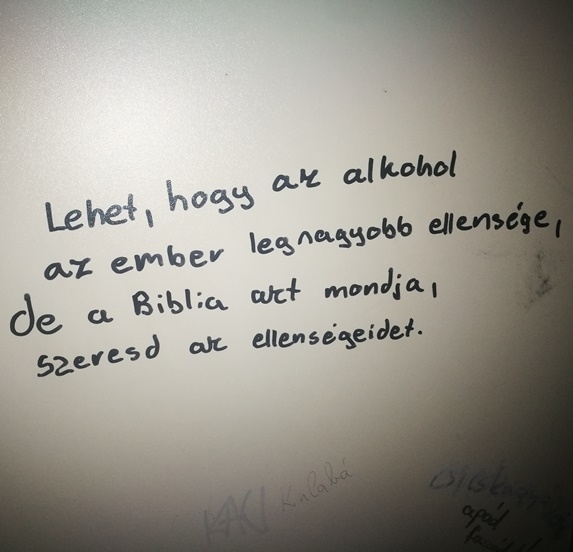 Lehet, hogy az alkohol
az ember legnagyobb ellensége,
de a Biblia azt mondja,
szeresd az ellenségeidet.
Kulabá
apád